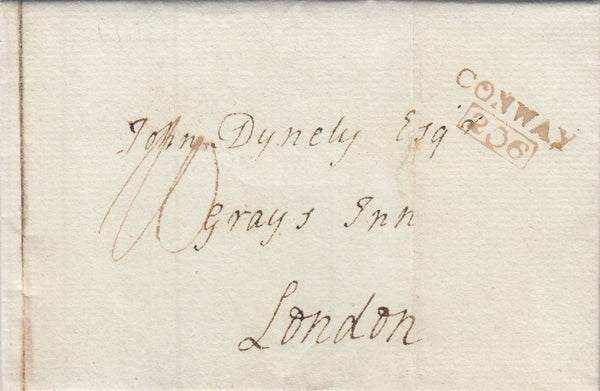 CONWAY
236
John Dynely Esqr
Grays Inn
London